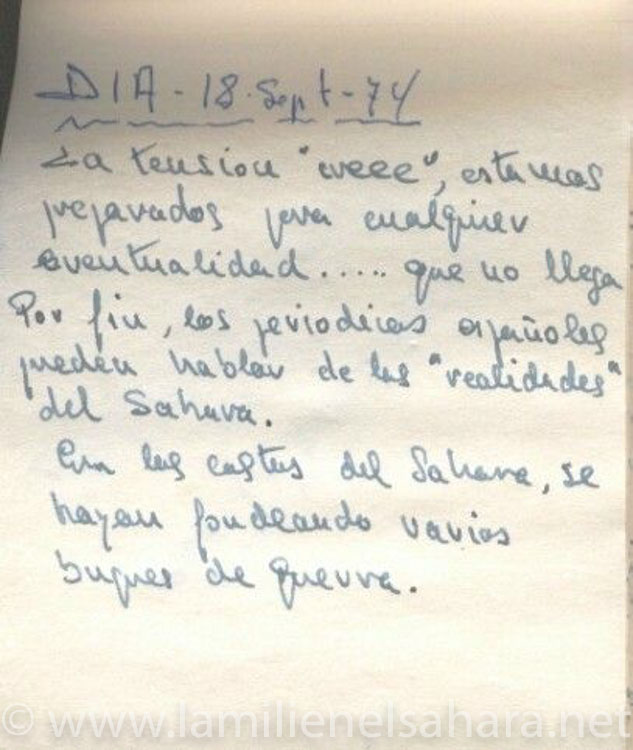 DIA - 18. Sept - 74
La tension "creee", estamos
preparados para cualquier
eventualidad..... que no llega
Por fin, los periodicos españoles
pueden hablar de las "realidades"
del Sahara.
En las costas del Sahara, se
hayan fondeando varios
buques de guerra.
© www.lamilienelsahara.net